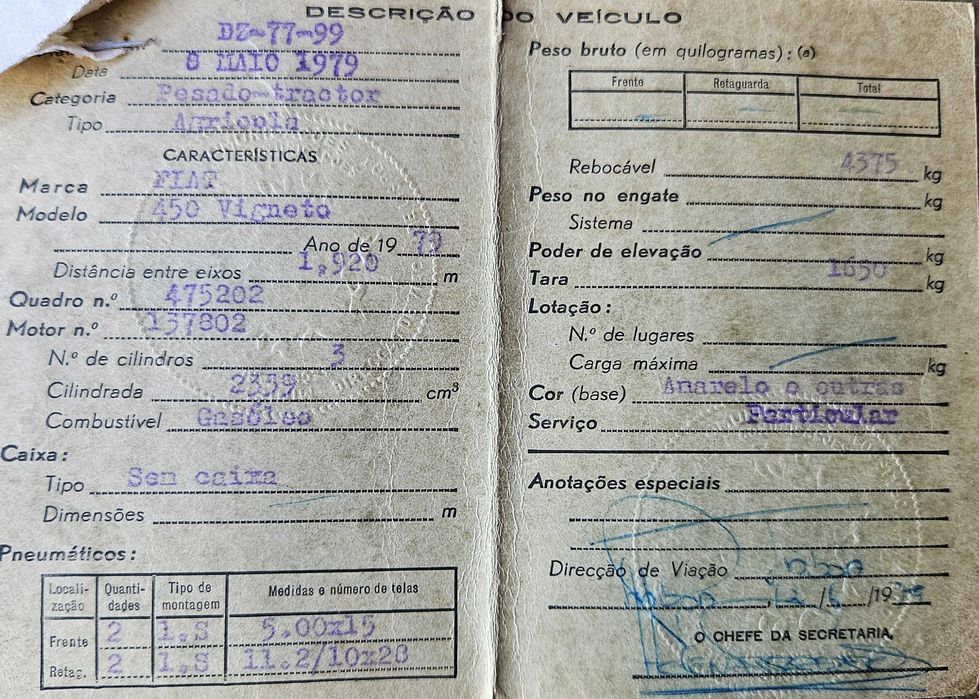 DESCRIÇÃO DO VEÍCULO
DZ-77-99
Data 8 MAIO 1979
Categoria Pesado-tractor
Tipo Agricola
CARACTERÍSTICAS
Marca FIAT
Modelo 450 Vigneto
Ano de 19 79
Distância entre eixos 1,920 m
Quadro n.º 475202
Motor n.º 137802
N.º de cilindros 3
Cilindrada 2339 cm³
Combustível Gasóleo
Caixa:
Tipo Sem caixa
Dimensões m
Pneumáticos:
Locali- Quanti- Tipo de Medidas e número de telas
zação dades montagem
Frente 2 1.S 5.00x15
Retag. 2 1.S 11.2/10x28
Peso bruto (em quilogramas): (a)
Frente Retaguarda Total
Rebocável 4375 kg
Peso no engate kg
Sistema
Poder de elevação kg
Tara 1650 kg
Lotação:
N.º de lugares
Carga máxima kg
Cor (base) Amarelo e outras
Serviço Particular
Anotações especiais
Direcção de Viação
/19
O CHEFE DA SECRETARIA,